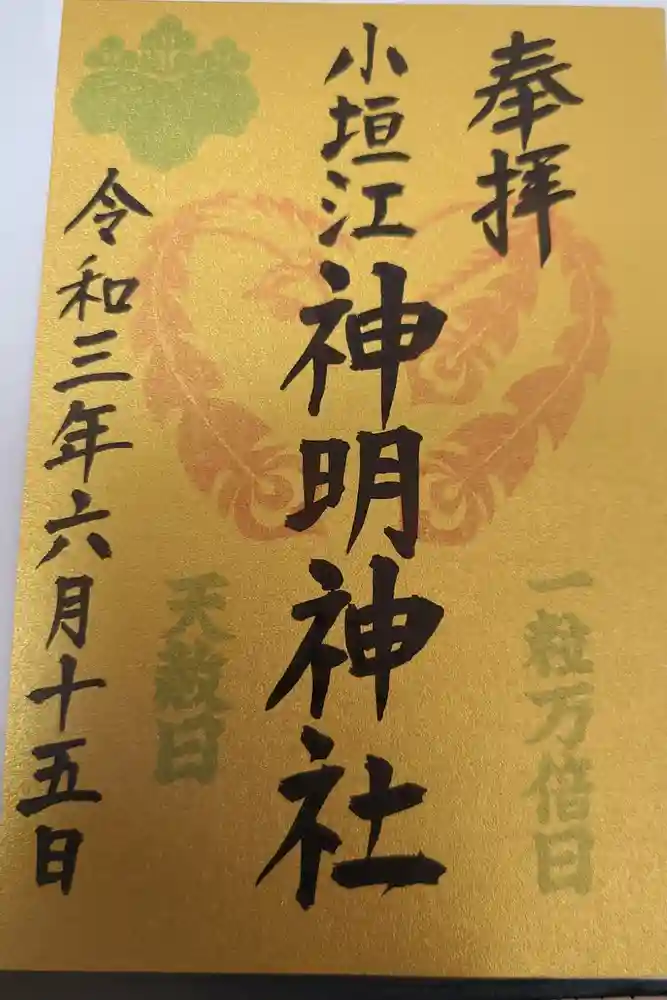 奉拝
一粒万倍日
小垣江神明神社
天赦日
令和三年六月十五日